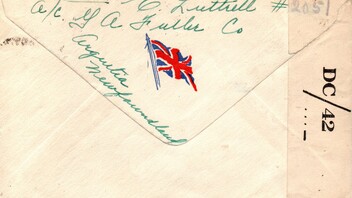 C. Luttrell # 2051
a/c. G A Fuller Co
Argentia
Newfoundland
DC/42